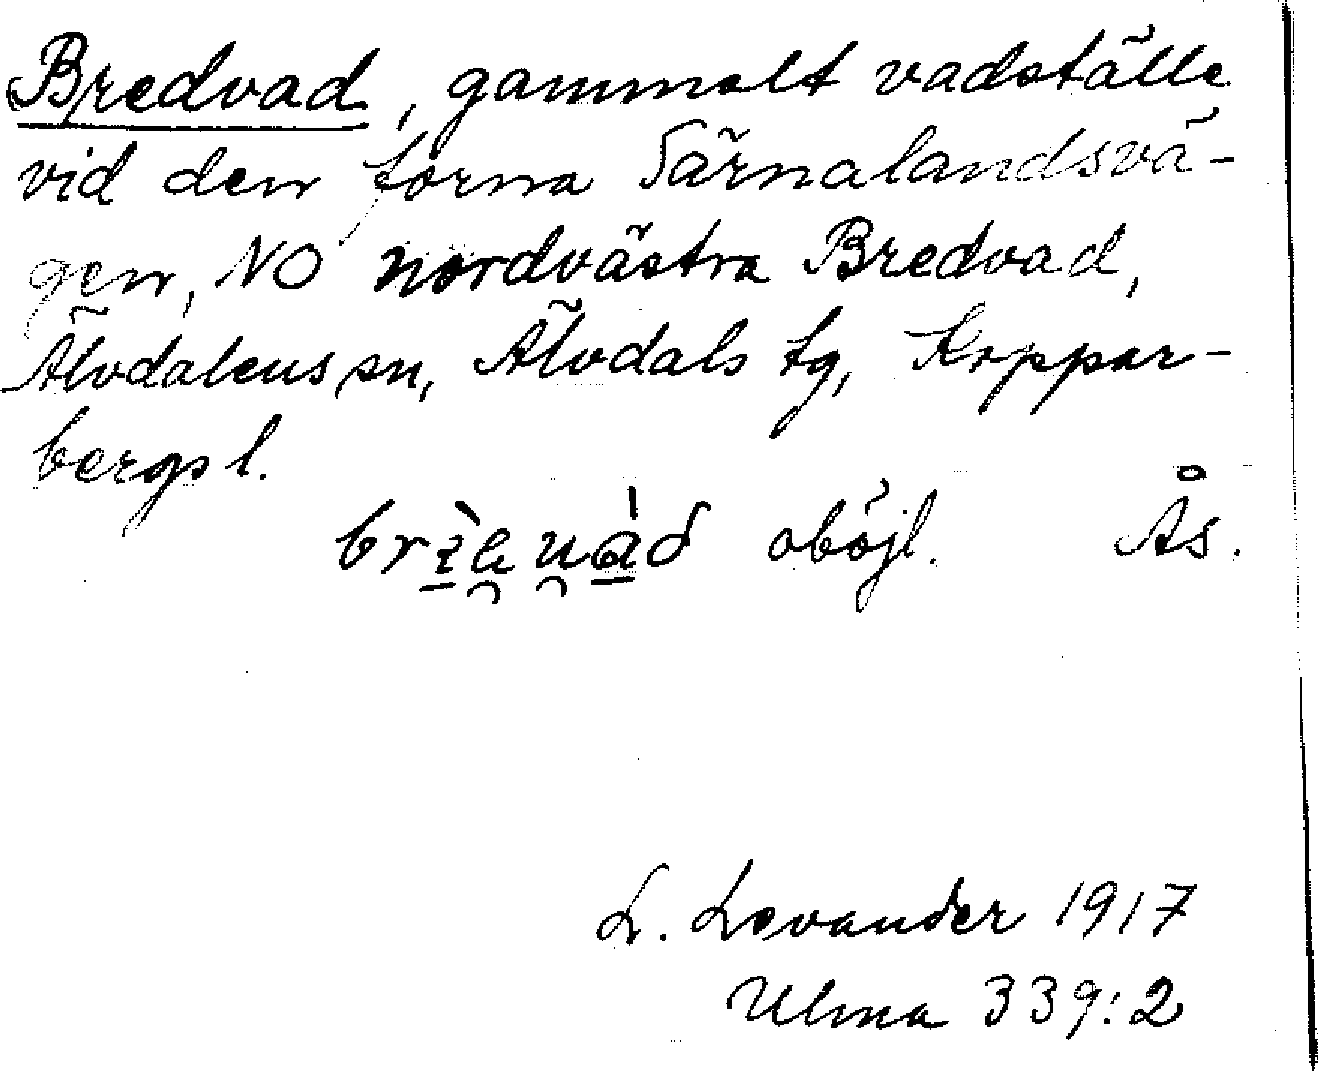 Bredvad, gammalt vadställe
vid den forna Särnalandsvä-
gen, NO nordvästra Bredvad,
Älvdalens sn, Älvdals tg, Koppar-
bergs l.
oböjl. Ås.
L. Levander 1917
Ulma 339:2